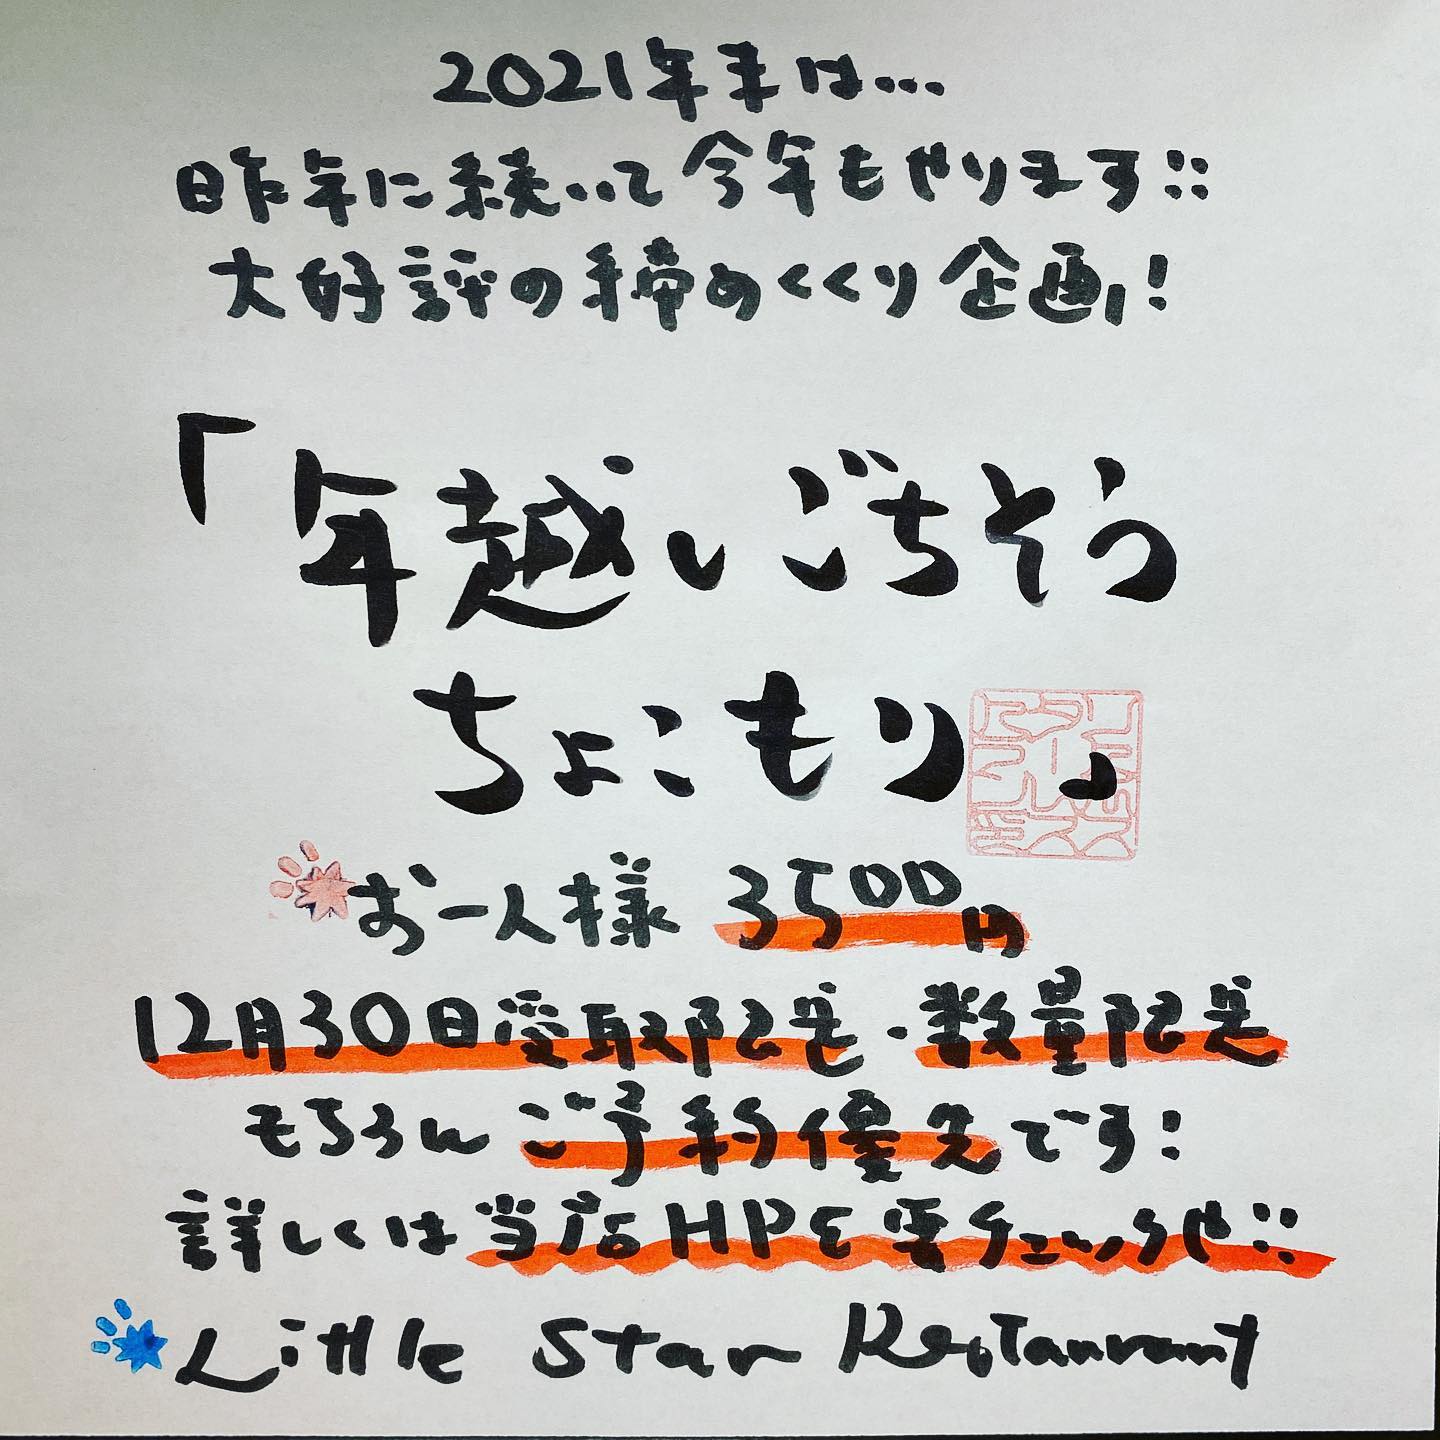 2021年末は…
昨年に続いて今年もやります!!
大好評の締めくくり企画!
「年越しごちそう
ちょこもり」
お一人様 3500円
12月30日受取限定・数量限定
もちろんご予約優先です!
詳しくは当店HPを要チェックや!!
Little Star Restaurant